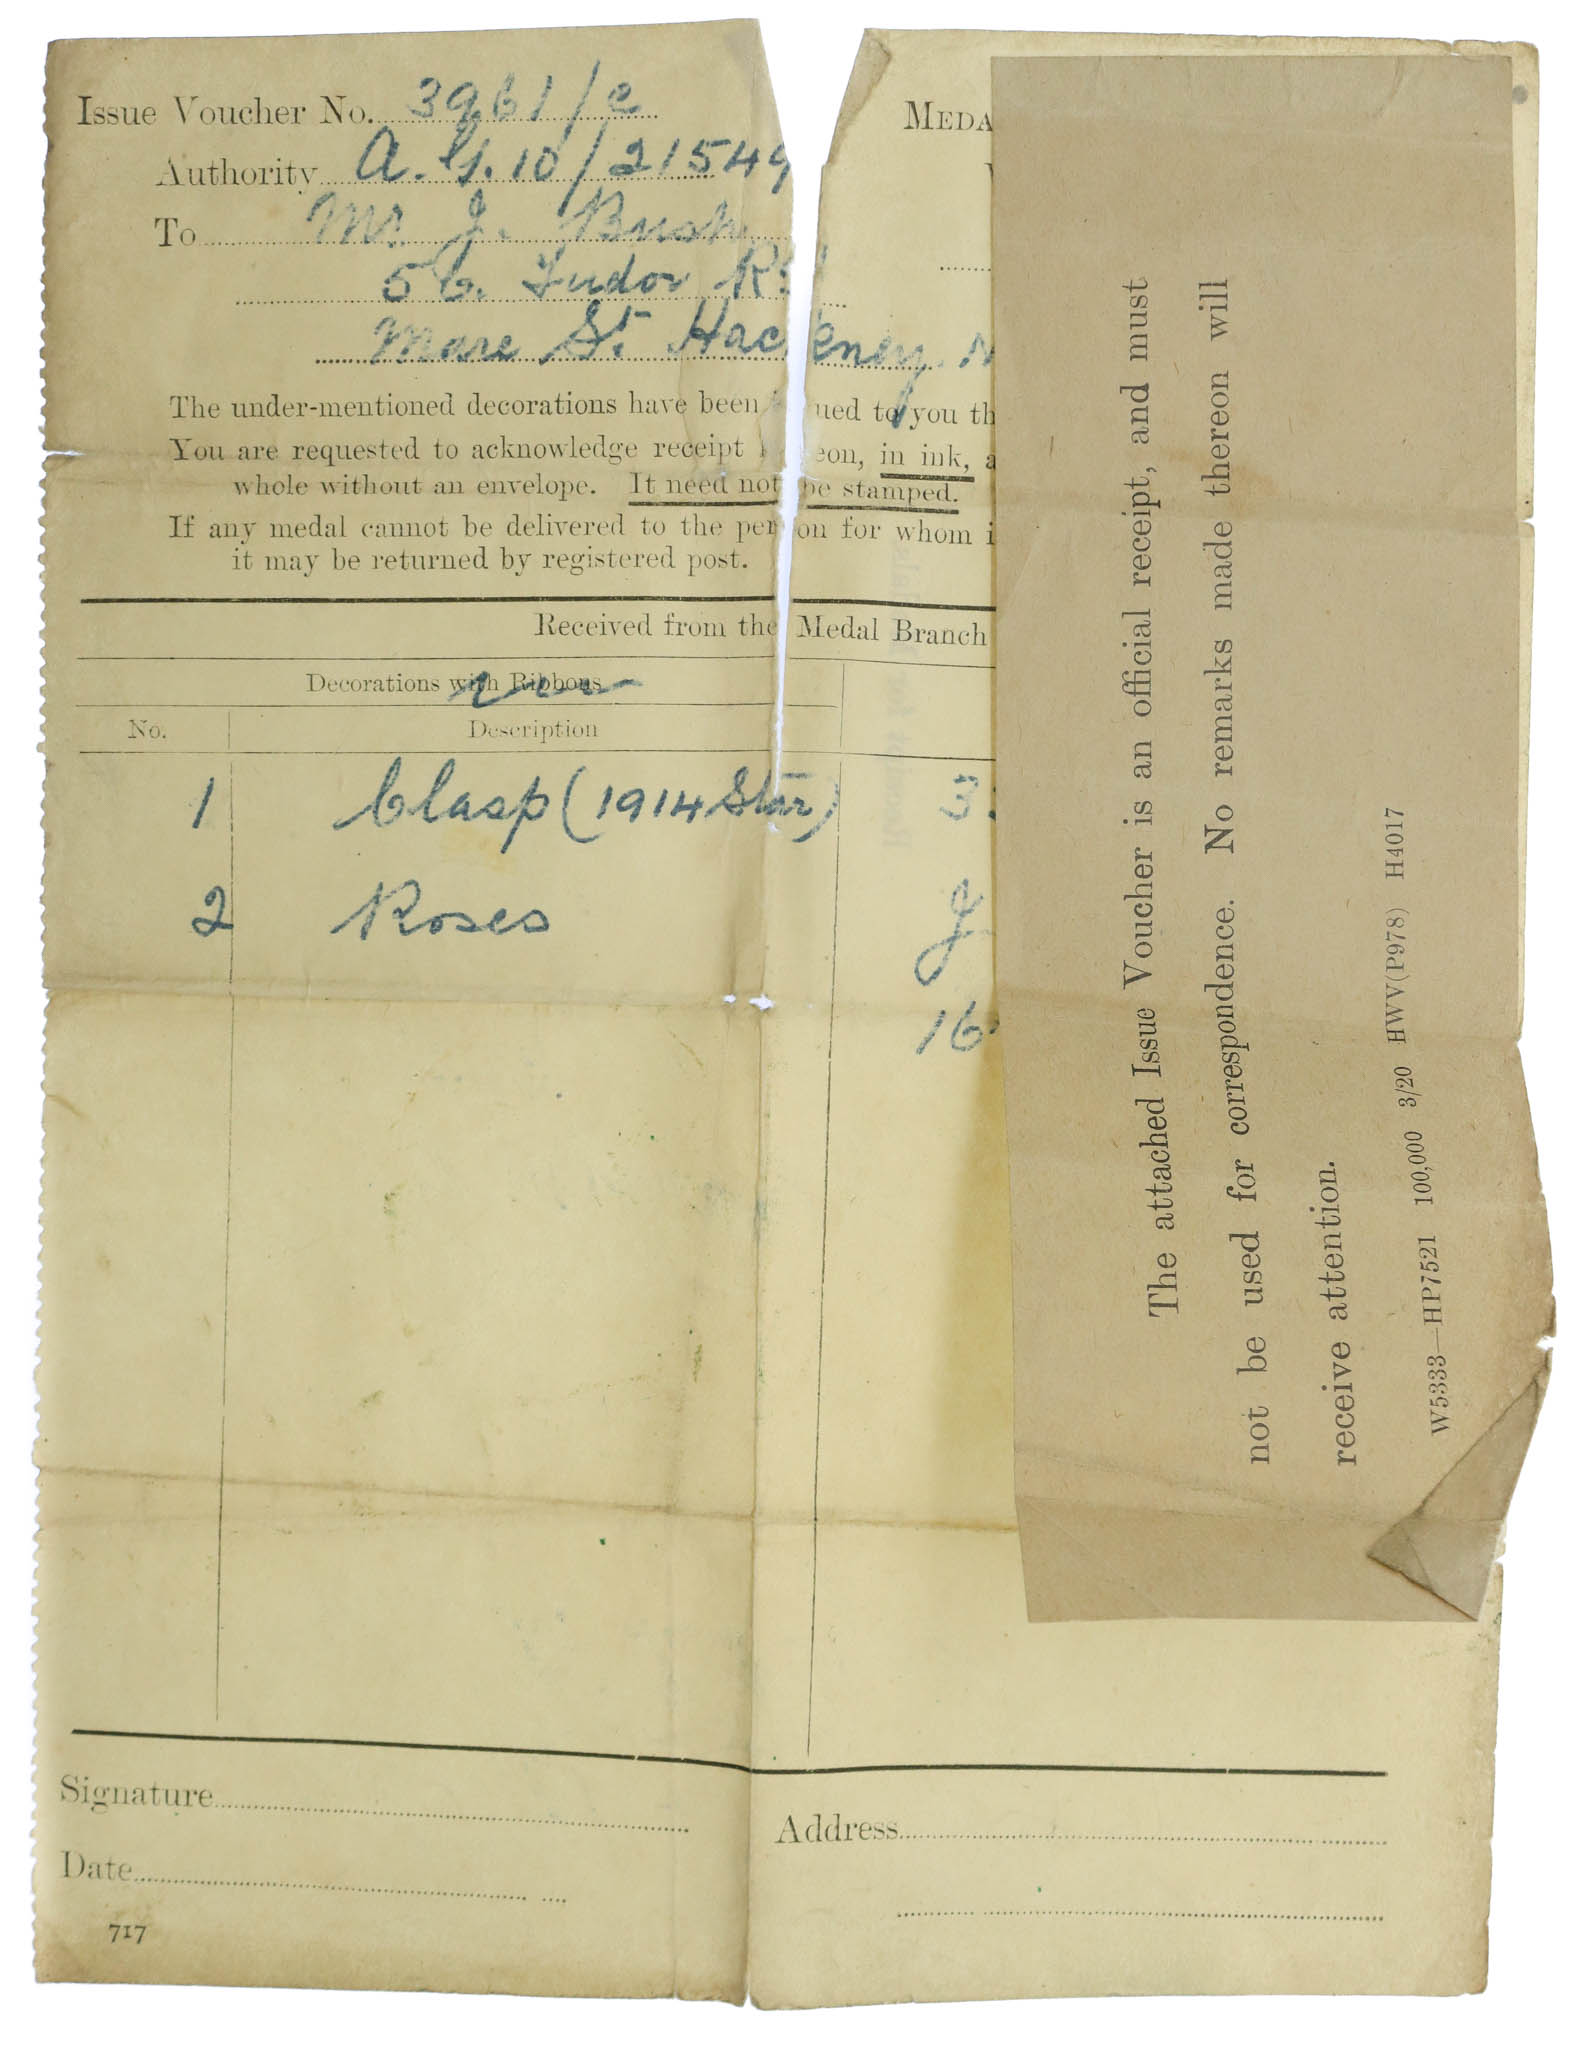 Issue Voucher No. 3961/c
Authority A.G. 10/21549
To Mr. J. Bush
56. Tudor Rd
Mare St. Hackney. N
MEDA
The under-mentioned decorations have been ued to you th
You are requested to acknowledge receipt eon, in ink, a
whole without an envelope. It need not be stamped.
If any medal cannot be delivered to the person for whom i
it may be returned by registered post.
Received from the Medal Branch
Decorations with Ribbons
No. Description
1 Clasp (1914 Star) 3
2 Roses J
16
Signature
Address
Date
717
The attached Issue Voucher is an official receipt, and must
not be used for correspondence. No remarks made thereon will
receive attention.
W5333—HP7521 100,000 3/20 HWV(P978) H4017